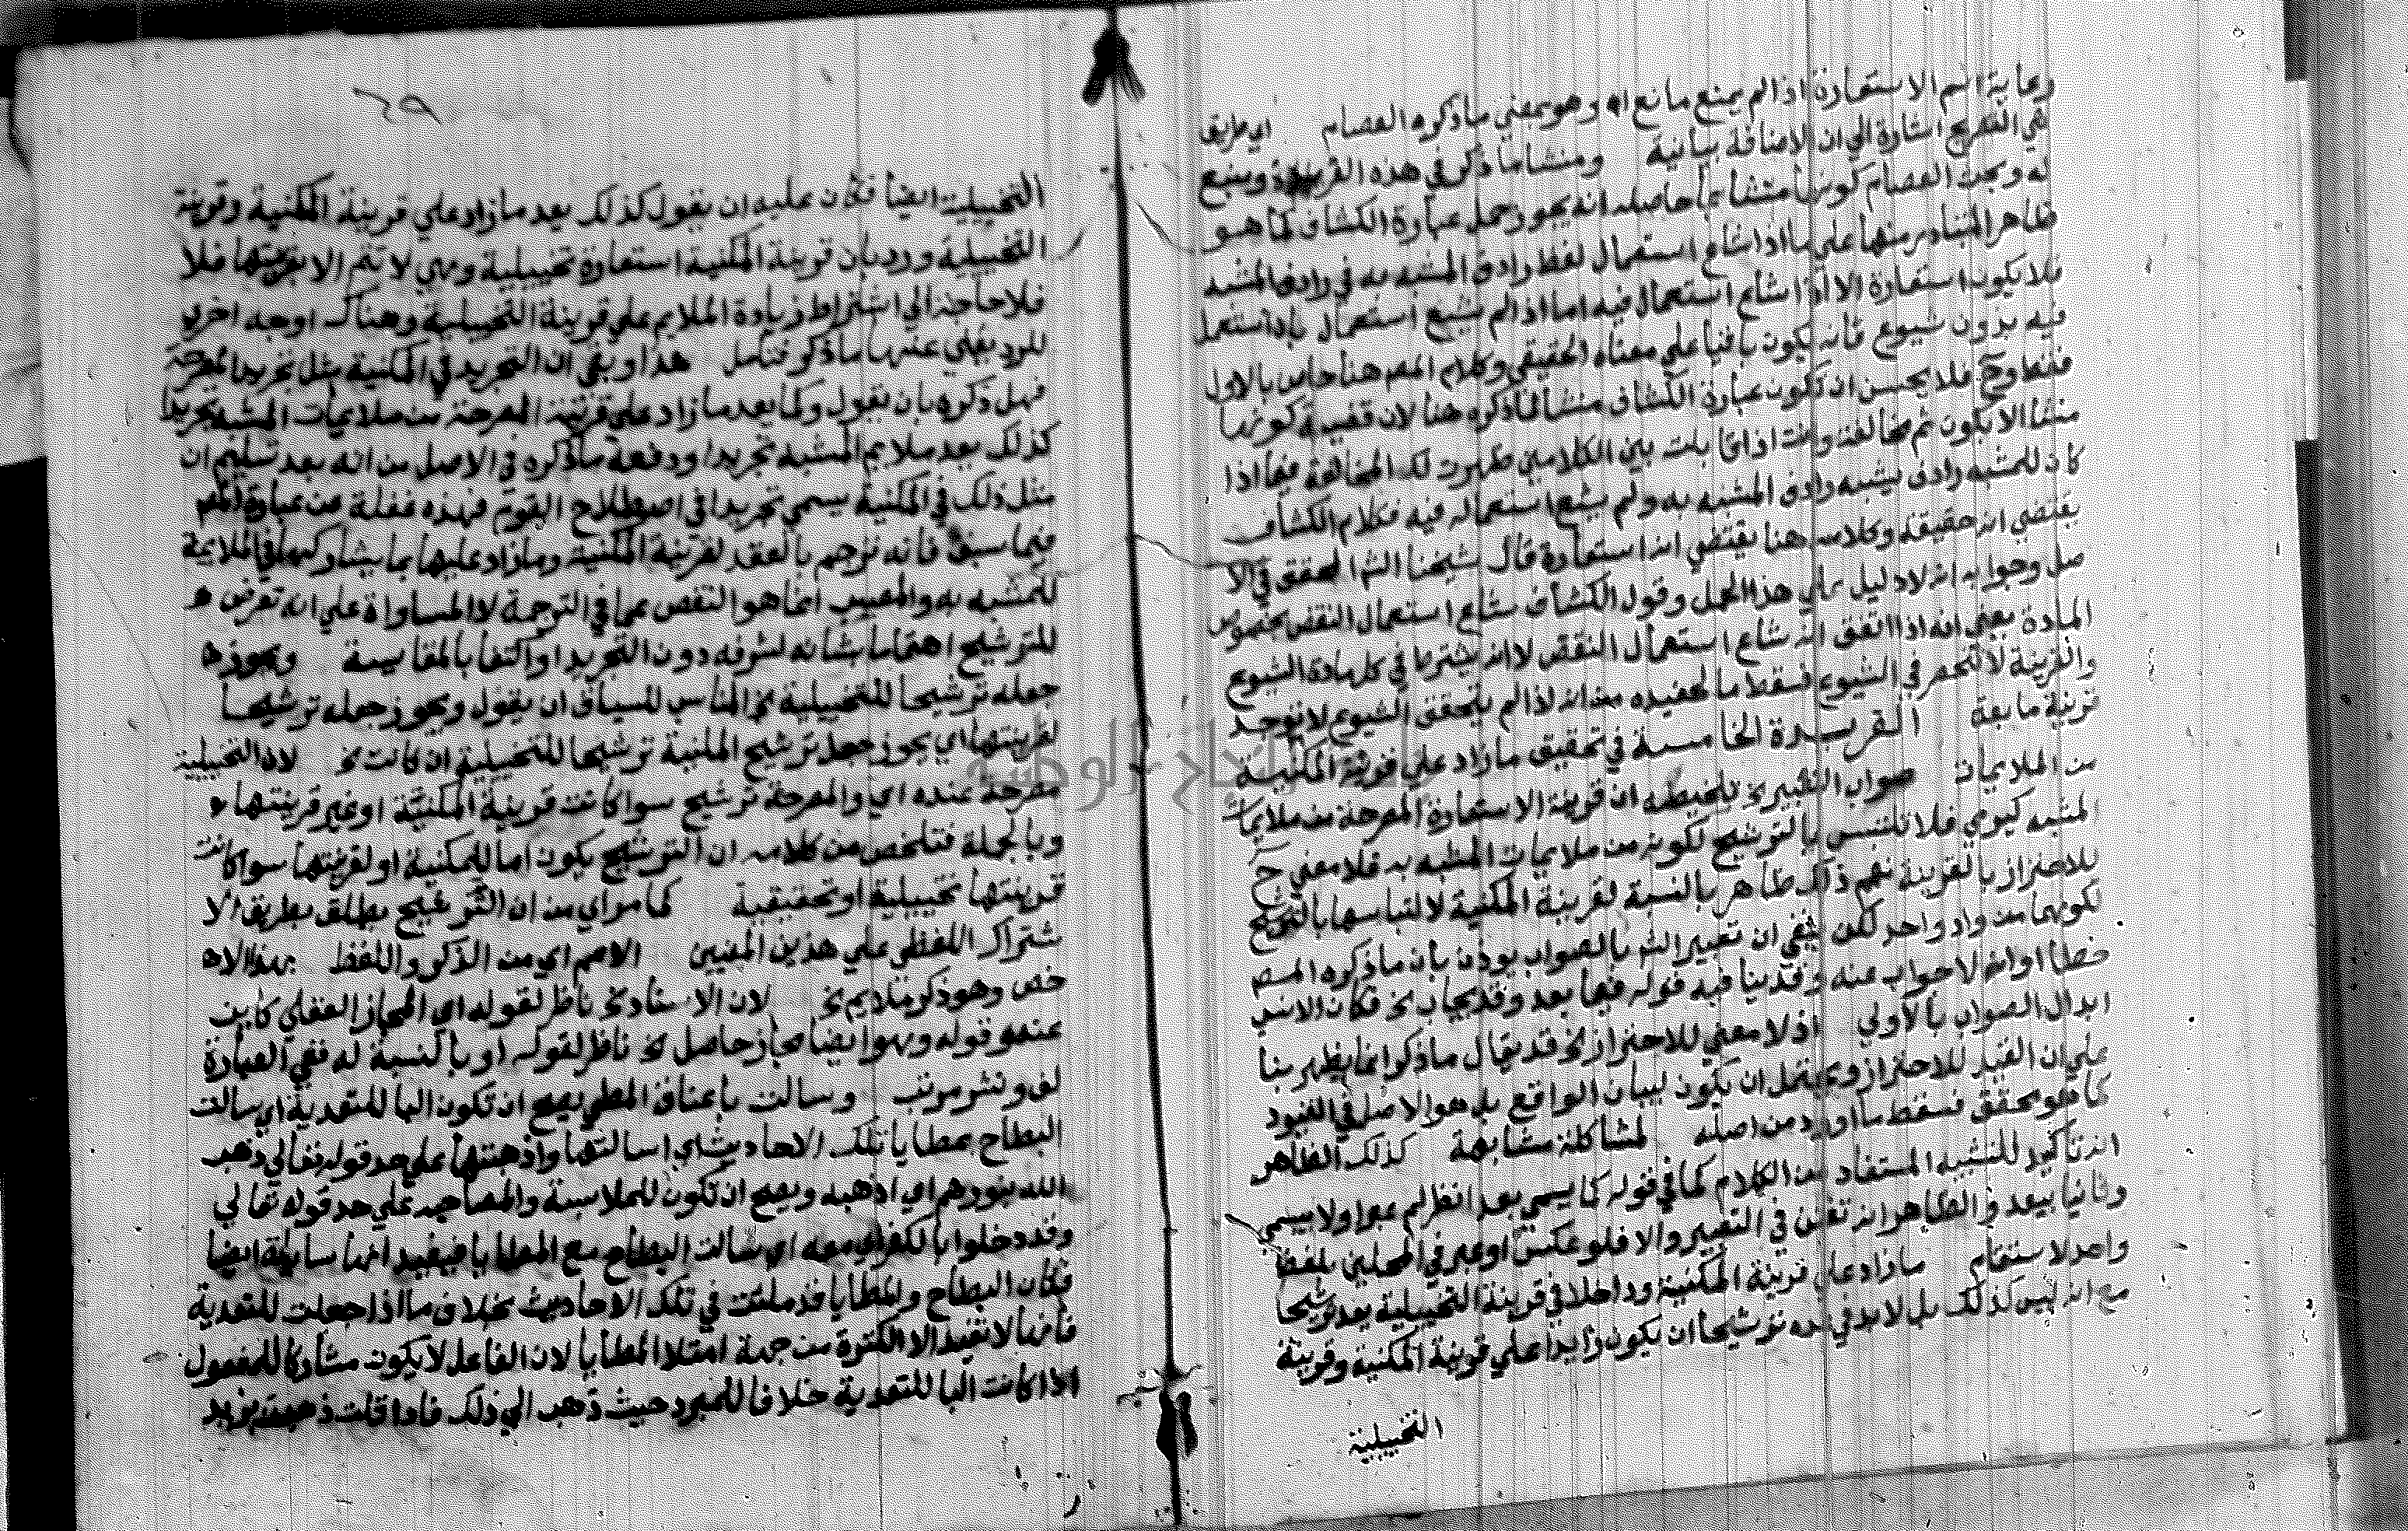 رعاية اسم الاستعارة اذا لم يمنع مانع اه وهو بمعني ما ذكره العصام اي طريق
في التصريح اشارة الي ان الاضافة بيانية ومنشا ما ذكر في هذه الفريدة ويتبع
له وبحث العصام كونها منشا بما حاصله انه يجوز حمل عبارة الكشاف كما هو
ظاهر المتبادر منها علي ما اذا شاع استعمال لفظ رادف المشبه به في رادف المشبه
فلا يكون استعارة الا اذا شاع استعماله فيه اما اذا لم يشع استعمال بان استعمل
فيه بدون شيوع فانه يكون باقيا علي معناه الحقيقي وكلام المصـ هنا خاص بالاول
فقط وح فلا يحسن ان تكون عبارة الكشاف منشا لما ذكره هنا لان قضية كونها
منشا الا يكون ثم مخالفة وانت اذا قابلت بين الكلامين ظهرت لك المخالفة فيما اذا
كان للمشبه رادف يشبه رادف المشبه به ولم يشع استعماله فيه فكلام الكشاف
يقتضي انه حقيقة وكلامه هنا يقتضي انه استعارة قال شيخنا الشـ المحقق في الا
صل وجوابه انه لا دليل علي هذا الحمل وقول الكشاف شاع استعمال النقض بخصوص
المادة يعني انه اذا اتفق انه شاع استعمال النقض لا انه يشترط في كل مادة الشيوع
والقرينة لا تنحصر في الشيوع فسقط ما لحفيده من انه اذا لم يتحقق الشيوع لا توجد
قرينة مانعة الفريدة الخامسة في تحقيق ما زاد علي قرينة المكنية
من الملايمات صواب التعبير الخ تلخيصه ان قرينة الاستعارة المصرحة من ملايمات
المشبه كيرمي فلا تلتبس بالترشيح لكونه من ملايمات المشبه به فلا معني ح
للاحتراز بالقرينة نعم ذلك ظاهر بالنسبة لقرينة المكنية لالتباسها بالترشيح
لكونهما من واد واحد لكن بقي ان تعبير الشـ بالصواب يوذن بان ما ذكره المصـ
خطأ او انه لا جواب عنه وقد ينافيه قوله فيما بعد وقد يجاب الخ فكان الانسب
ابدال الصواب بالاولي اذ لا معني للاحتراز الخ قد يقال ما ذكر انما يظهر بنا
علي ان القيد للاحتراز ويحتمل ان يكون لبيان الواقع بل هو الاصل في القيود
كما هو محقق فسقط ما اورد من اصله لمشاكلة مشابهة كذلك الظاهر
انه تاكيد للتشبيه المستفاد من الكلام كما في قوله كما يسمي بعد انظر لم عبر اولا بيسمي
وثانيا بيعد والظاهر انه تفنن في التعبير والا فلو عكس او عبر في المحلين بلفظ
واحد لاستقام ما زاد علي قرينة المكنية وداخلا في قرينة التخييلية يعد ترشيحا
مع انه ليس كذلك بل لا بد في عده ترشيحا ان يكون زايدا علي قرينة المكنية وقرينة
التخييلية
٦٩
التخييلية ايضا فكان عليه ان يقول كذلك يعد ما زاد علي قرينة المكنية وقرينة
التخييلية ورد بان قرينة المكنية استعارة تخييلية وهي لا تتم الا بقرينتها فلا
فلا حاجة الي اشتراط زيادة الملايم علي قرينة التخييلية وهناك اوجه اخري
للرد يغني عنها ما ذكر فتامل هذا وبقي ان التجريد في المكنية مثل تجريد المصرحة
فهل ذكره بان يقول وكما يعد ما زاد علي قرينة المصرحة من ملايمات المشبه تجريدا
كذلك يعد ملايم المشبه تجريدا ودفعه ما ذكره في الاصل من انه بعد تسليم ان
مثل ذلك في المكنية يسمي تجريدا في اصطلاح القوم فهذه غفلة عن عبارة المصـ
فيما سبق فانه ترجم بالعقد لقرينة المكنية وما زاد عليها بما يشاركها في الملايمة
للمشبه به والمعيب انما هو النقص عما في الترجمة لا المساواة علي انه تعرض
للترشيح اهتماما بشانه لشرفه دون التجريد او اكتفا بالمقايسة ويجوز
جعله ترشيحا للتخييلية الخ المناسب للسياق ان يقول ويجوز جعله ترشيحا
لقرينتها اي يجوز جعل ترشيح المكنية ترشيحا للتخييلية ان كانت الخ لان التخييلية
مصرحة عنده اي والمصرحة ترشيح سوا كانت قرينة المكنية او غير قرينتها
وبالجملة فتلخص من كلامه ان الترشيح يكون اما للمكنية او لقرينتها سوا كانت
قرينتها تخييلية او تحقيقية كما مر اي من ان الترشيح يطلق بطريق الا
شتراك اللفظي علي هذين المعنيين الاعم اي من الذكر واللفظ بهذا الا
خص وهو ذكر ملايم الخ لان الاسناد الخ ناظر لقوله اي المجاز العقلي كاين
عنه وقوله وهو ايضا مجاز حاصل الخ ناظر لقوله او بالنسبة له ففي العبارة
لف ونشر مرتب وسالت باعناق المطي يصح ان تكون البا للتعدية اي سالت
البطاح بمطايا تلك الاحاديث اي اسالتها واذهبتها علي حد قوله تعالي ذهب
الله بنورهم اي اذهبه ويصح ان تكون للملابسة والمصاحبة علي حد قوله تعالي
وقد دخلوا بالكفر اي معه اي سالت البطاح مع المطايا فيفيد انها سايلة ايضا
فكان البطاح والمطايا قد ملئت في تلك الاحاديث بخلاف ما اذا جعلت للتعدية
فانها لا تفيد الا الكثرة من جهة امتلا المطايا لان الفاعل لا يكون مشاركا للمفعول
اذا كانت البا للتعدية خلافا للمبرد حيث ذهب الي ذلك فاذا قلت ذهبت بزيد